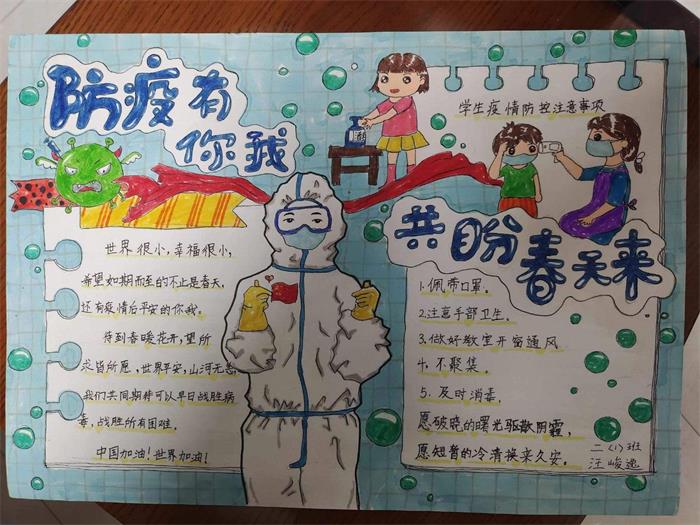 防疫有
你我
共盼春天来
世界很小,幸福很小,
希望如期而至的不止是春天,
还有疫情后平安的你我。
待到春暖花开,望所
求皆所愿,世界平安,山河无恙
我们共同期待可以早日战胜病
毒,战胜所有困难。
中国加油!世界加油!
学生疫情防控注意事项
1.佩带口罩。
2.注意手部卫生。
3.做好教室开窗通风
4.不聚集。
5.及时消毒。
愿破晓的曙光驱散阴霾,
愿短暂的冷清换来久安。
二(1)班
汪峻逸